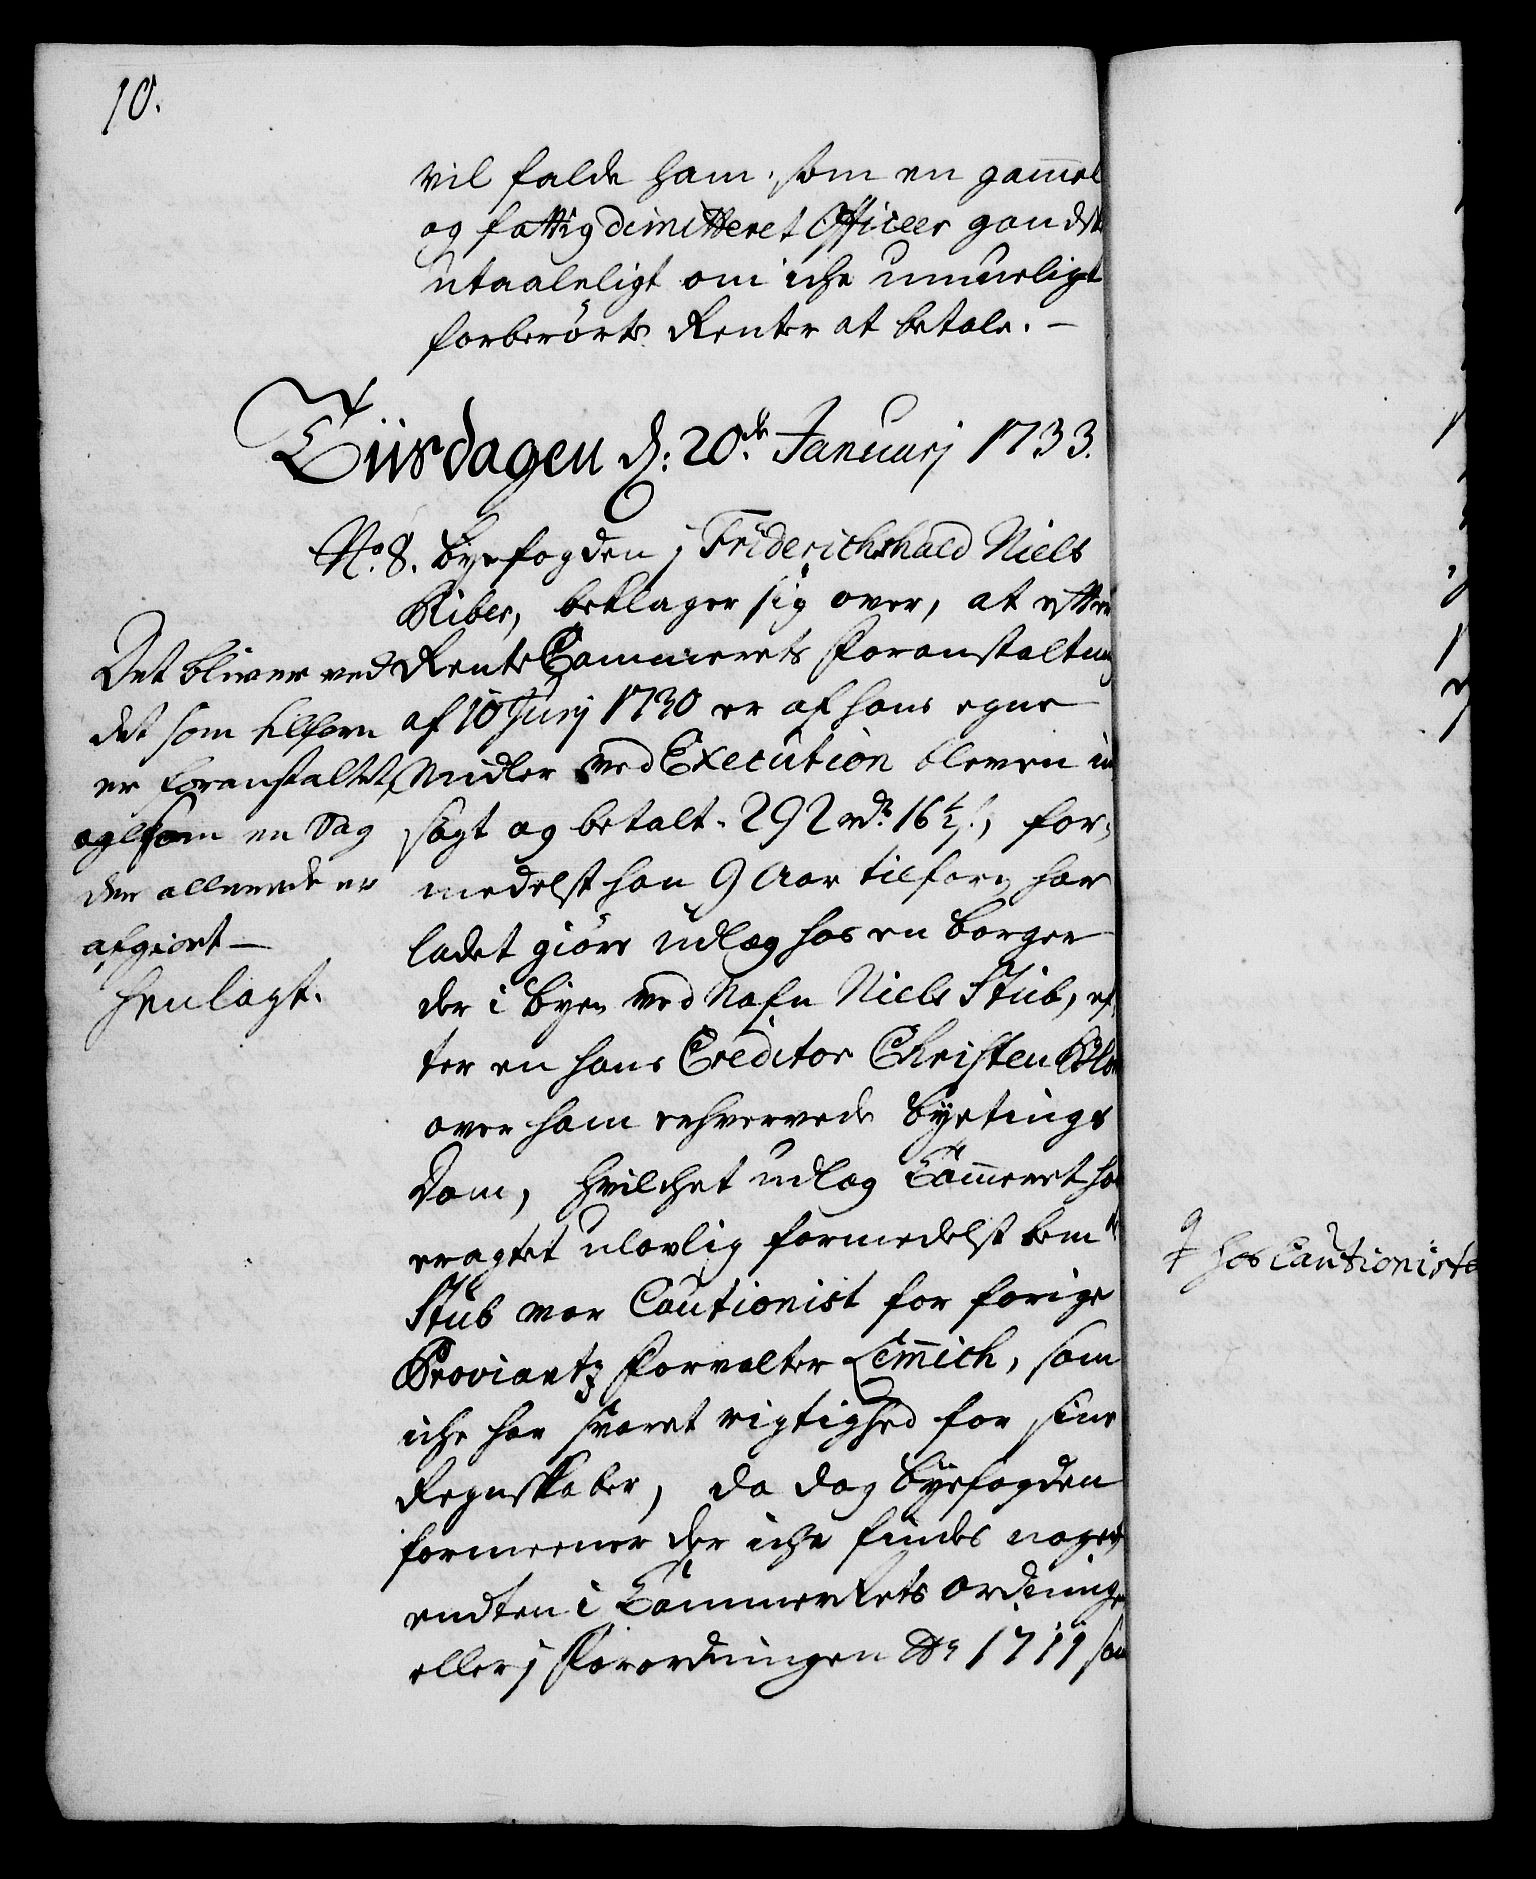 10.
vil falde ham som en gam̄el
og fattig dimitteret Officer gandske
utaaleligt om iche umueligt
forberörte Renter at betale. –
Tiisdagen d: 20de Januarj 1733.
No 8. Byefogden j Friderichshald Niels
Riber, beklager sig over, at efter
Rente Cammerets Foranstaltning
af 10 Junj 1730 er af hans egne
Midler ved Execution bleven ind
søgt og betalt 292 rdr 16½ s, for-
medelst han 9 Aar tilforn har
ladet giöre udlæg hos en borger
der i Byen ved Nafn Niels Stub, ef
ter en hans Creditor Christen
over ham erhvervede Byetings
Dom, hvilchet udlæg Cam̄eret har
eragtet ulovlig formedelst bemte
Stub var Cautionist for forige
Proviantz Forvalter Lem̄ich, som
iche har svaret rigtighed for sine
Regnskaber, da dog Byefogden
formeener der iche findes noget
endten i Cammer Rets Ordningen
eller j Forordningen Ao 1711 som
Det bliver ved
det som tilforn
er foranstaltet,
og som en Sag
der allerede er
afgiort –
Henlagt.
hos Cautionist